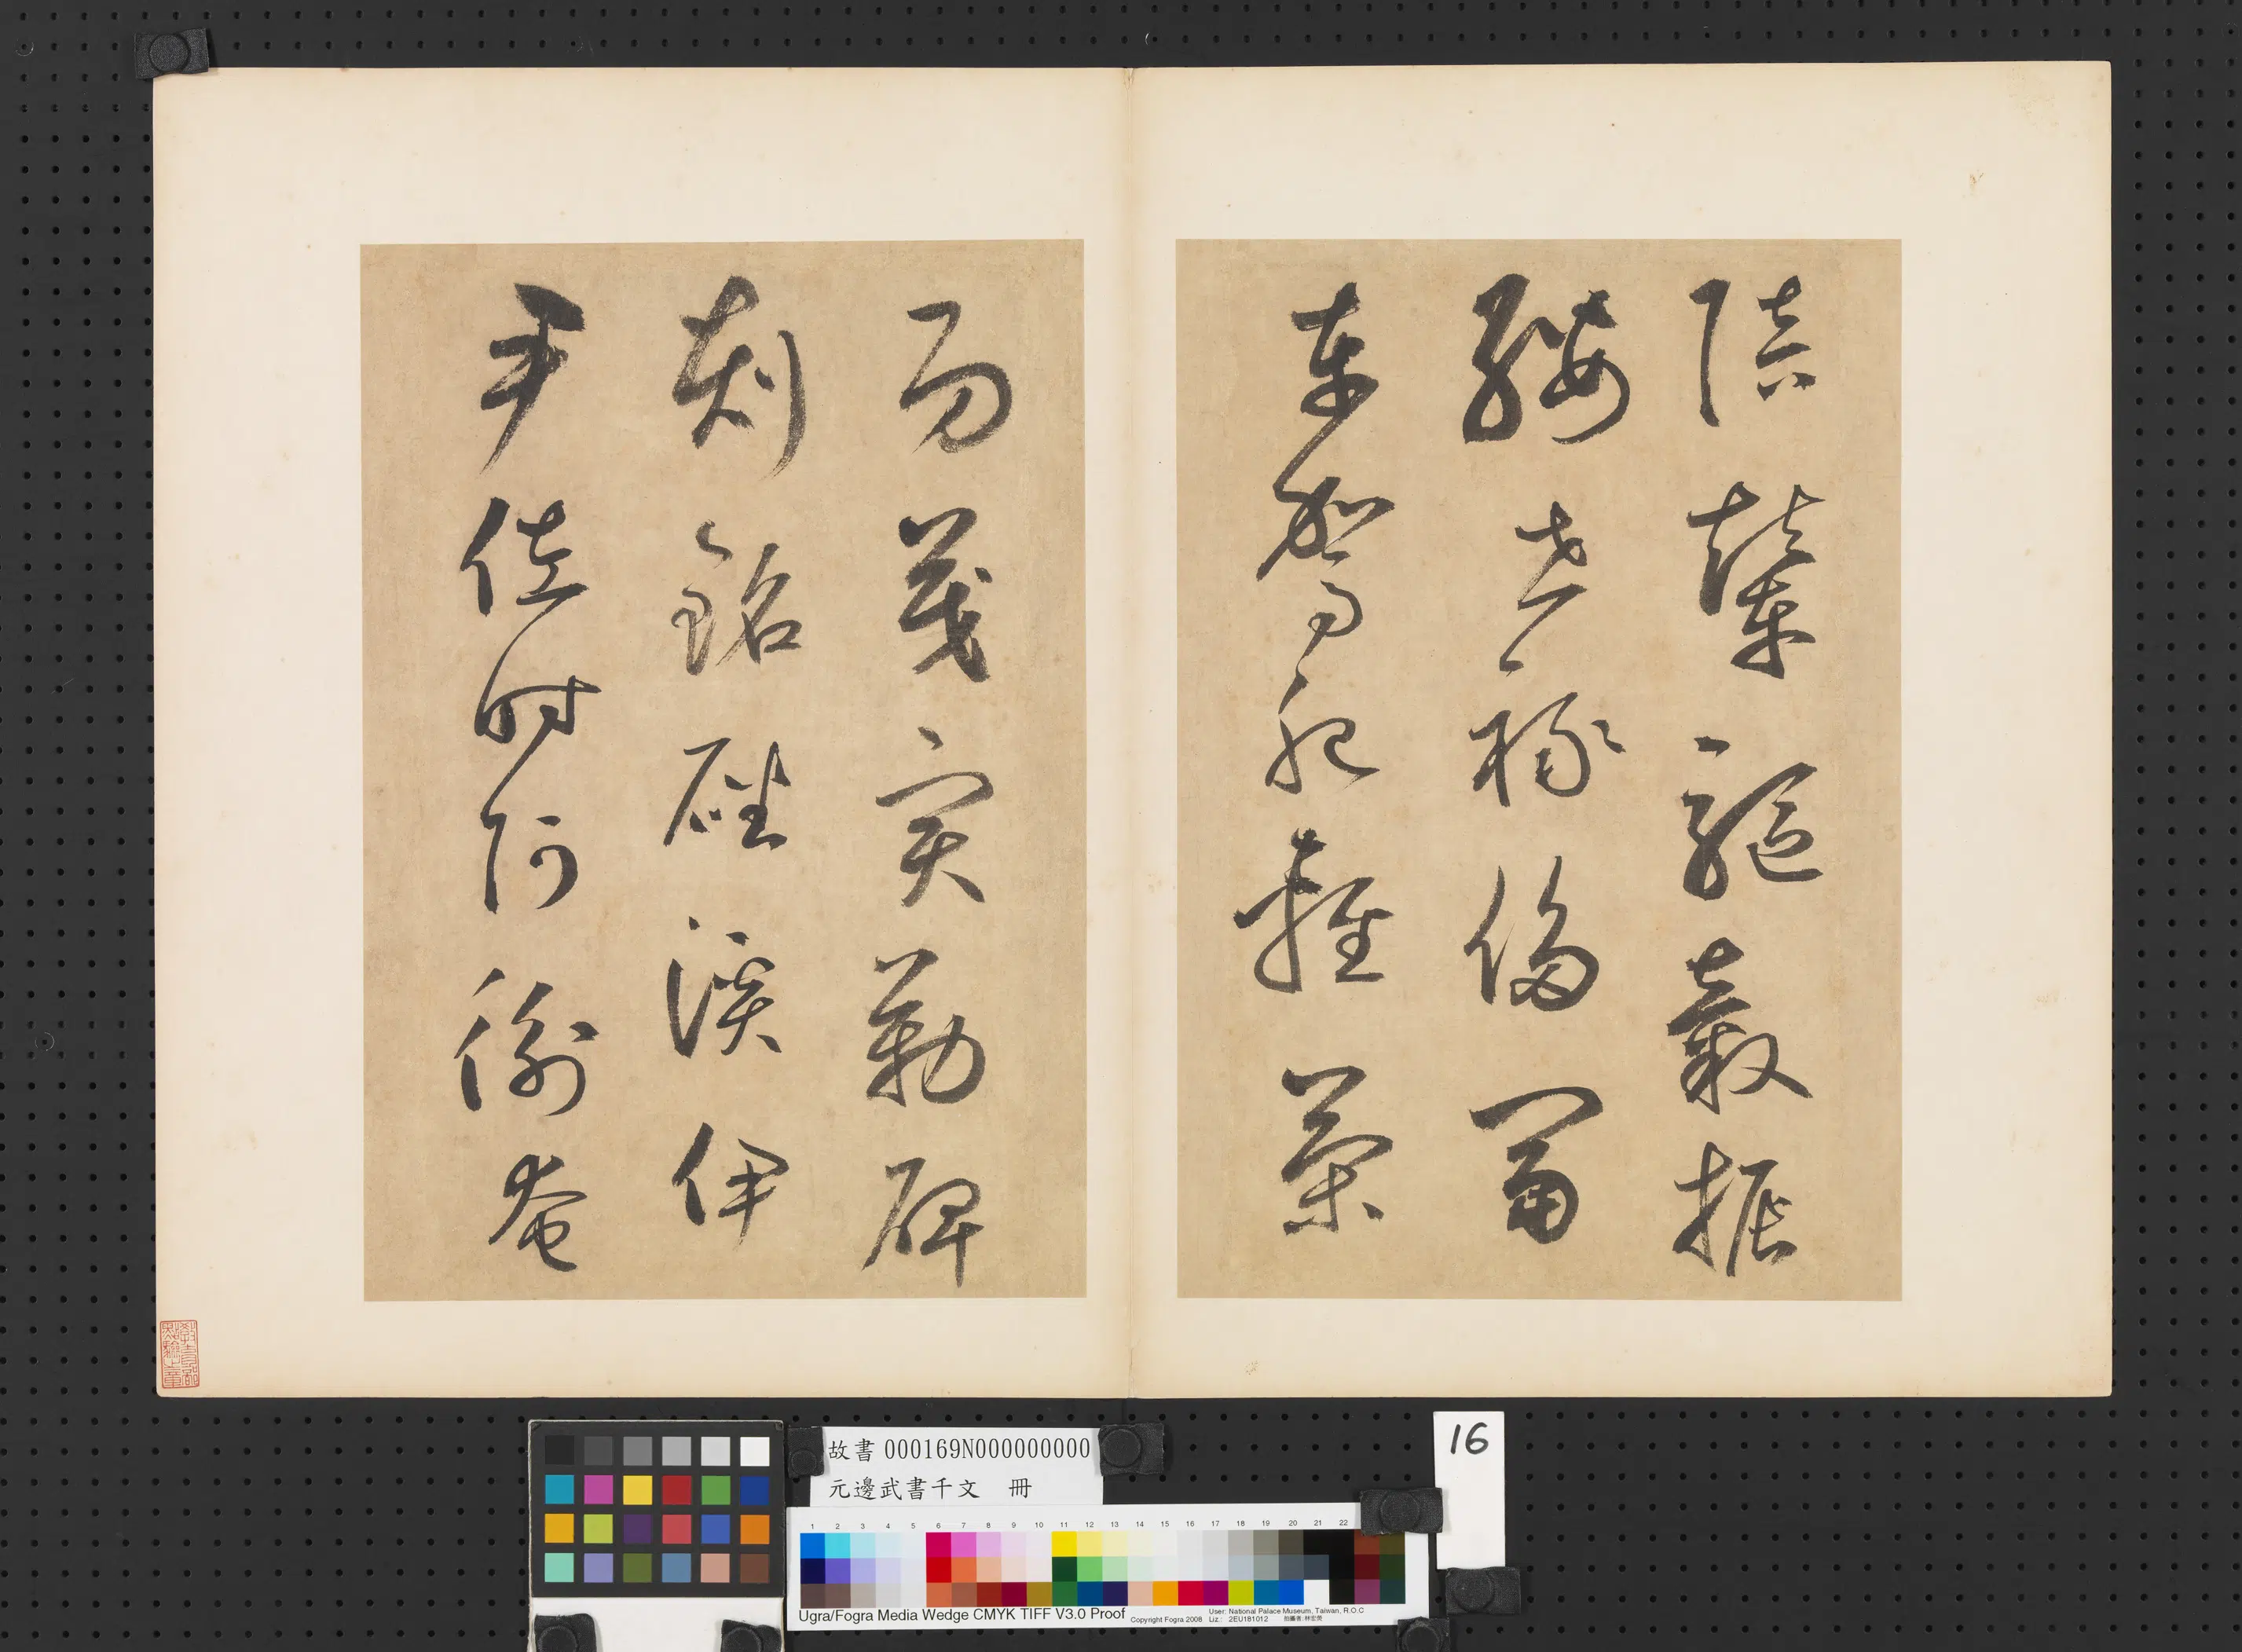 陪輦驅轂振
纓世祿侈富
車駕肥輕策
功茂實勒碑
刻銘磻溪伊
尹佐時阿衡奄
教育部點驗之章
故書000169N000000000
元邊武書千文 冊
16
1 2 3 4 5 6 7 8 9 10 11 12 13 14 15 16 17 18 19 20 21 22
Ugra/Fogra Media Wedge CMYK TIFF V3.0 Proof
Copyright Fogra 2008
User: National Palace Museum, Taiwan, R.O.C
Liz.: 2EU181012